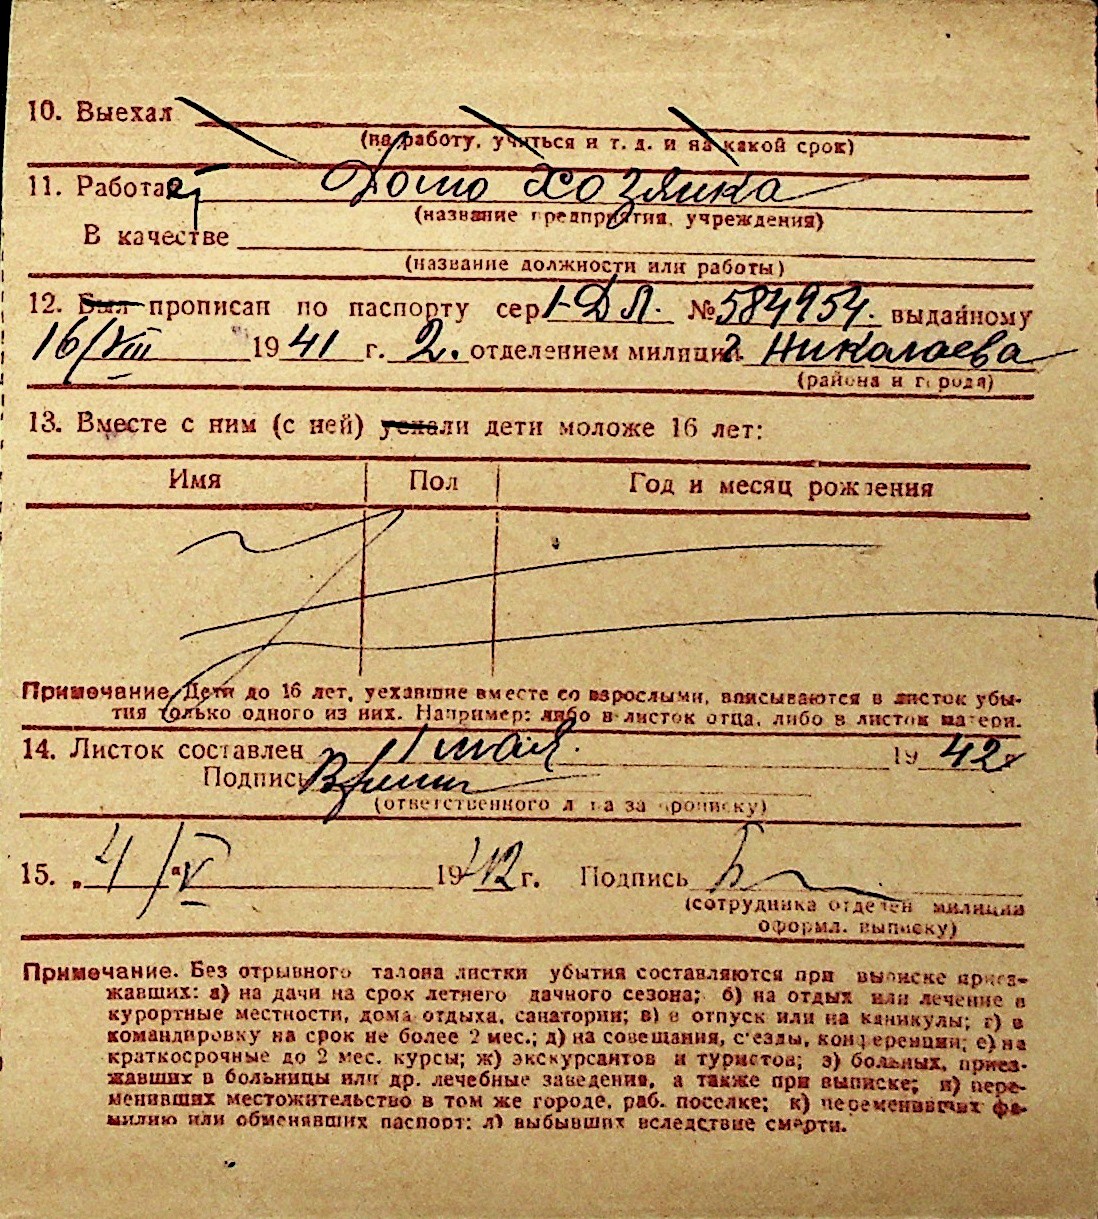 10. Выехал
(на работу, учиться и т. д. и на какой срок)
11. Работает Домо хозяйка
(название предприятия, учреждения)
В качестве
(название должности или работы)
12. Был прописан по паспорту сер I-ДЛ. № 584954. выданному
16/VIII 1941 г. 2. отделением милиции г. Николаева
(района и города)
13. Вместе с ним (с ней) уехали дети моложе 16 лет:
Имя Пол Год и месяц рождения
Примечание. Дети до 16 лет, уехавшие вместе со взрослыми, вписываются в листок убы-
тия только одного из них. Например: либо в листок отца, либо в листок матери.
14. Листок составлен 1 мая. 1942
Подпись
(ответственного лица за прописку)
15. „4/V" 1942 г. Подпись
(сотрудника отделен милиции
оформл. выписку)
Примечание. Без отрывного талона листки убытия составляются при выписке приез-
жавших: а) на дачи на срок летнего дачного сезона; б) на отдых или лечение в
курортные местности, дома отдыха, санатории; в) в отпуск или на каникулы; г) в
командировку на срок не более 2 мес.; д) на совещания, съезды, конференции; е) на
краткосрочные до 2 мес. курсы; ж) экскурсантов и туристов; з) больных, приез-
жавших в больницы или др. лечебные заведения, а также при выписке; и) пере-
менивших местожительство в том же городе, раб. поселке; к) переменивших фа-
милию или обменявших паспорт; л) выбывших вследствие смерти.